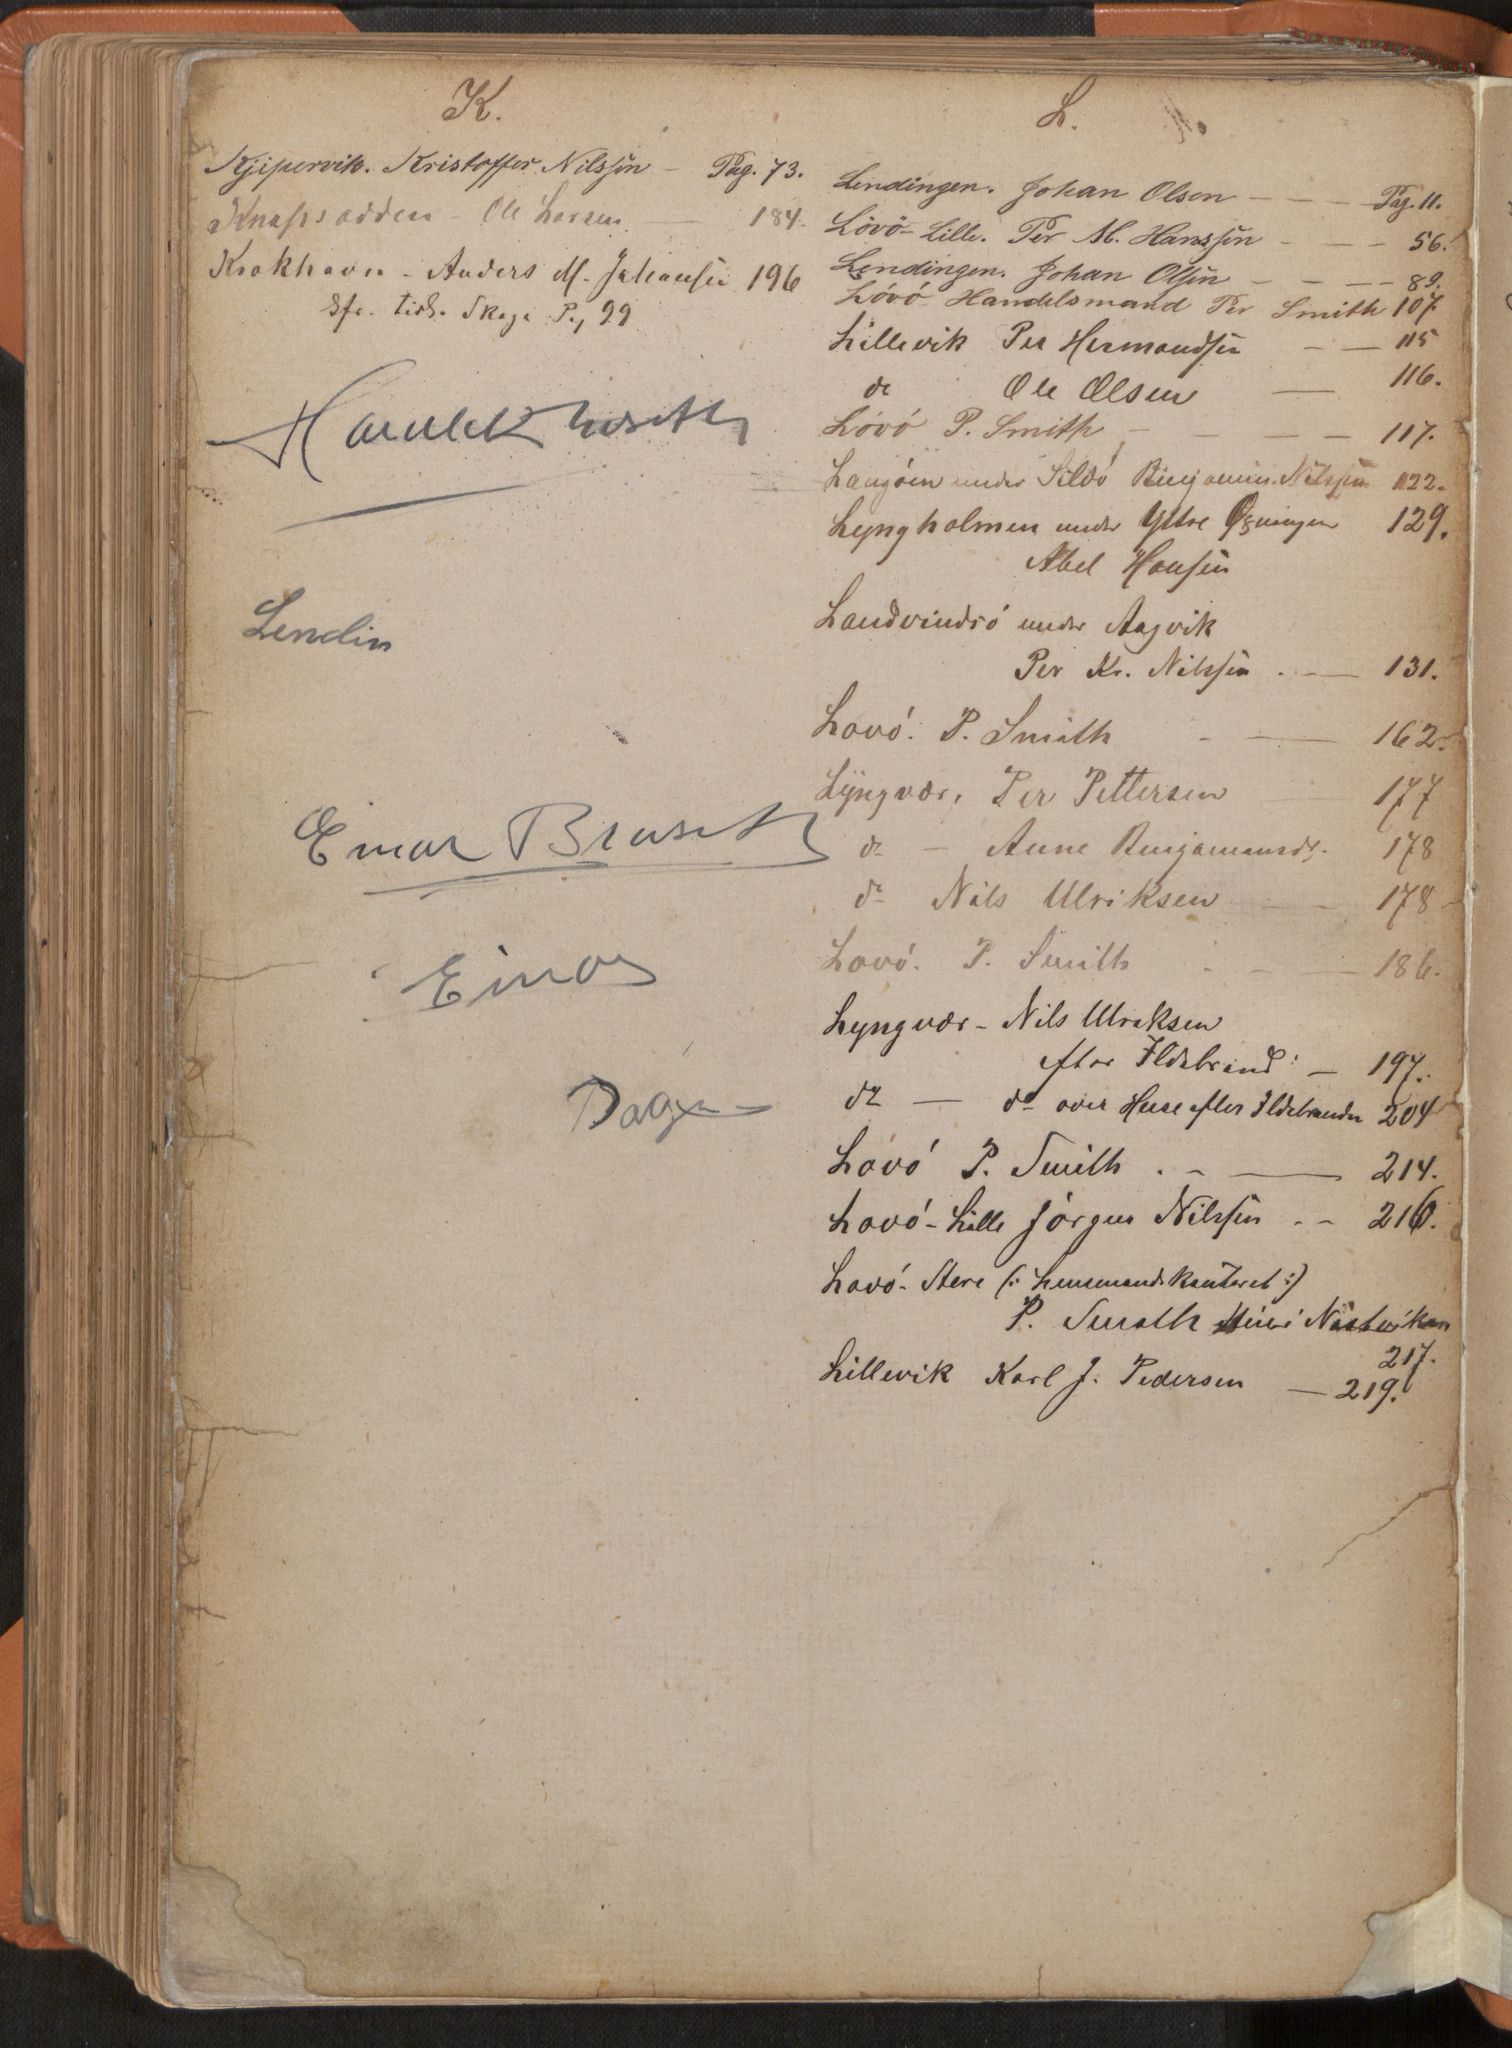 K.
Kjipervik. Kristoffer Nilssen - Pag. 73.
Knapsodden - Ole Larsen — 184.
Krokhavn - Anders M. Johansen 196
Skage P., 99
Lendin
Einar
L.
Lendingen. Johan Olsen - - - Pag. 11.
Lövö-Lille. Per M. Hanssen - - - 56.
Lendingen. Johan Olsen - - - - 89.
Lövö Handelsmand Per Smith 107.
Lillevik Per Hermandsen - — 115
do Ole Olsen — 116.
Lövö P. Smith - - - - 117.
Langöen under Sildö Benjamin Nilssen 122.
Lyngholmen under Yttre 129.
Abel Hansen
Landvindsö under Aagvik
Per Kr. Nilssen . - — 131.
Lovö. P. Smith - — 162.
Lyngvær, Per Pettersen — 177
do - Anne Benjaminsdr. 178
do Nils Ulriksen - - 178
Lovö. P. Smith - - — 186.
Lyngvær - Nils Ulriksen
efter Ildebrand: — 197.
do — do over Huse efter 204
Lovö P. Smith . - — 214.
Lovö-Lille Jörgen Nilssen - - 216.
Lovö-Store (: Lensmandskontoret :)
P. Smith
217.
Lillevik Karl J. Pedersen — 219.